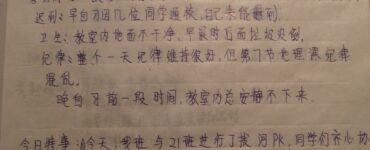 迟到：早自习因几位同学违校，自己未能做到。
卫生：教室内地面不干净，早晨时后面垃圾未倒。
纪律：整个一天纪律维持很好，但第7节地理课纪律
混乱。
晚自习前一段时间，教室内总安静不下来。
今日特事：今天，我班与21班进行了拔河PK，同学们齐心协